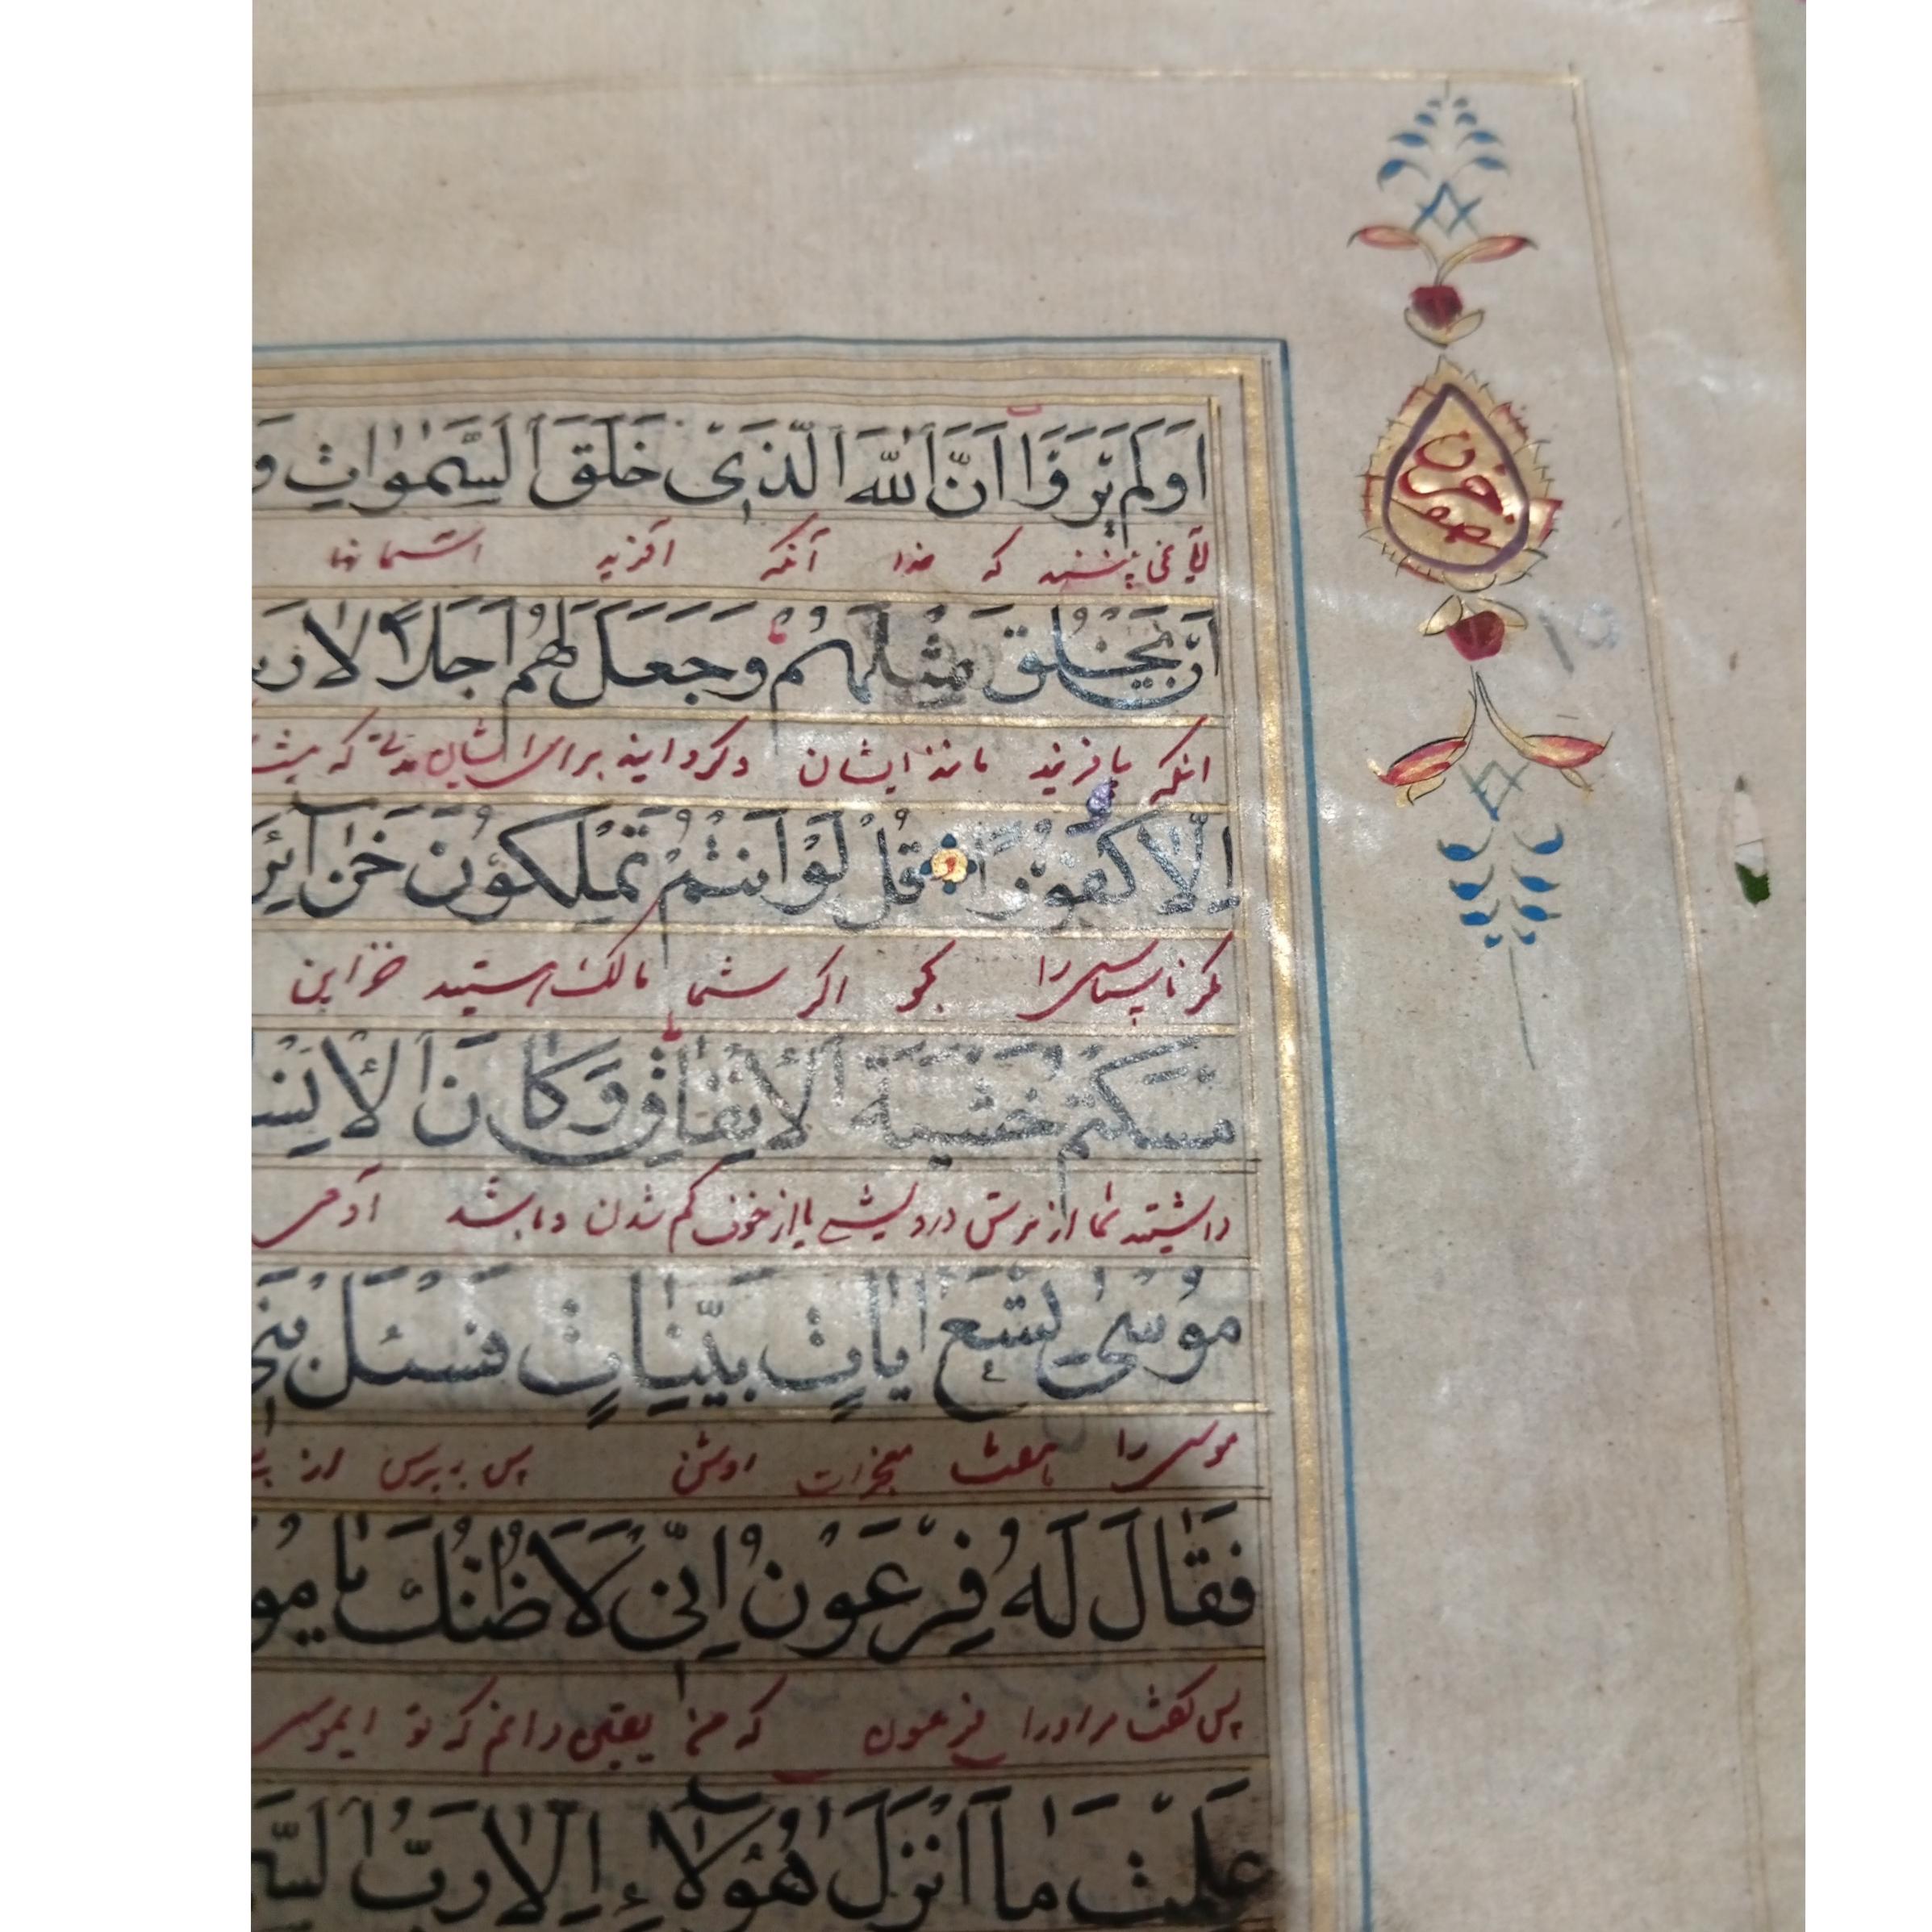 اَوَلَمْ يَرَوْا اَنَّ اللّٰهَ الَّذِى خَلَقَ السَّمٰوَاتِ وَ
که خدا آنکه آفرید اسمانها
اَنْ يَخْلُقَ مِثْلَهُمْ وَجَعَلَ لَهُمْ اَجَلًا لَا رَيْ
انکه بیافریند مانند ایشان و کردانید برای ایشان مدتی که
اِلَّا كُفُورًا قُلْ لَوْ اَنْتُمْ تَمْلِكُونَ خَزَآئِنَ
مکر ناسپاسی را بکو اکر شما مالک هستید خزاین
مْسَكْتُمْ خَشْيَةَ الْاِنْفَاقِ وَكَانَ الْاِنْسَا
داشتید شما از ترس درویشی یا از خوف کم شدن و باشد آدمی
مُوسٰى تِسْعَ اٰيَاتٍ بَيِّنَاتٍ فَسْئَلْ بَنِى
موسی را معجزات روشن پس بپرس از
فَقَالَ لَهُ فِرْعَوْنُ اِنِّى لَاَظُنُّكَ يَا مُو
پس کفت مر او را فرعون که من یقین دانم که تو ایموسی
عَلِمْتَ مَا اَنْزَلَ هٰؤُلَاءِ اِلَّا رَبُّ